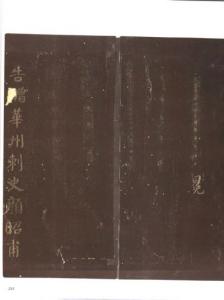 冕
告贈華州刺史顏昭甫